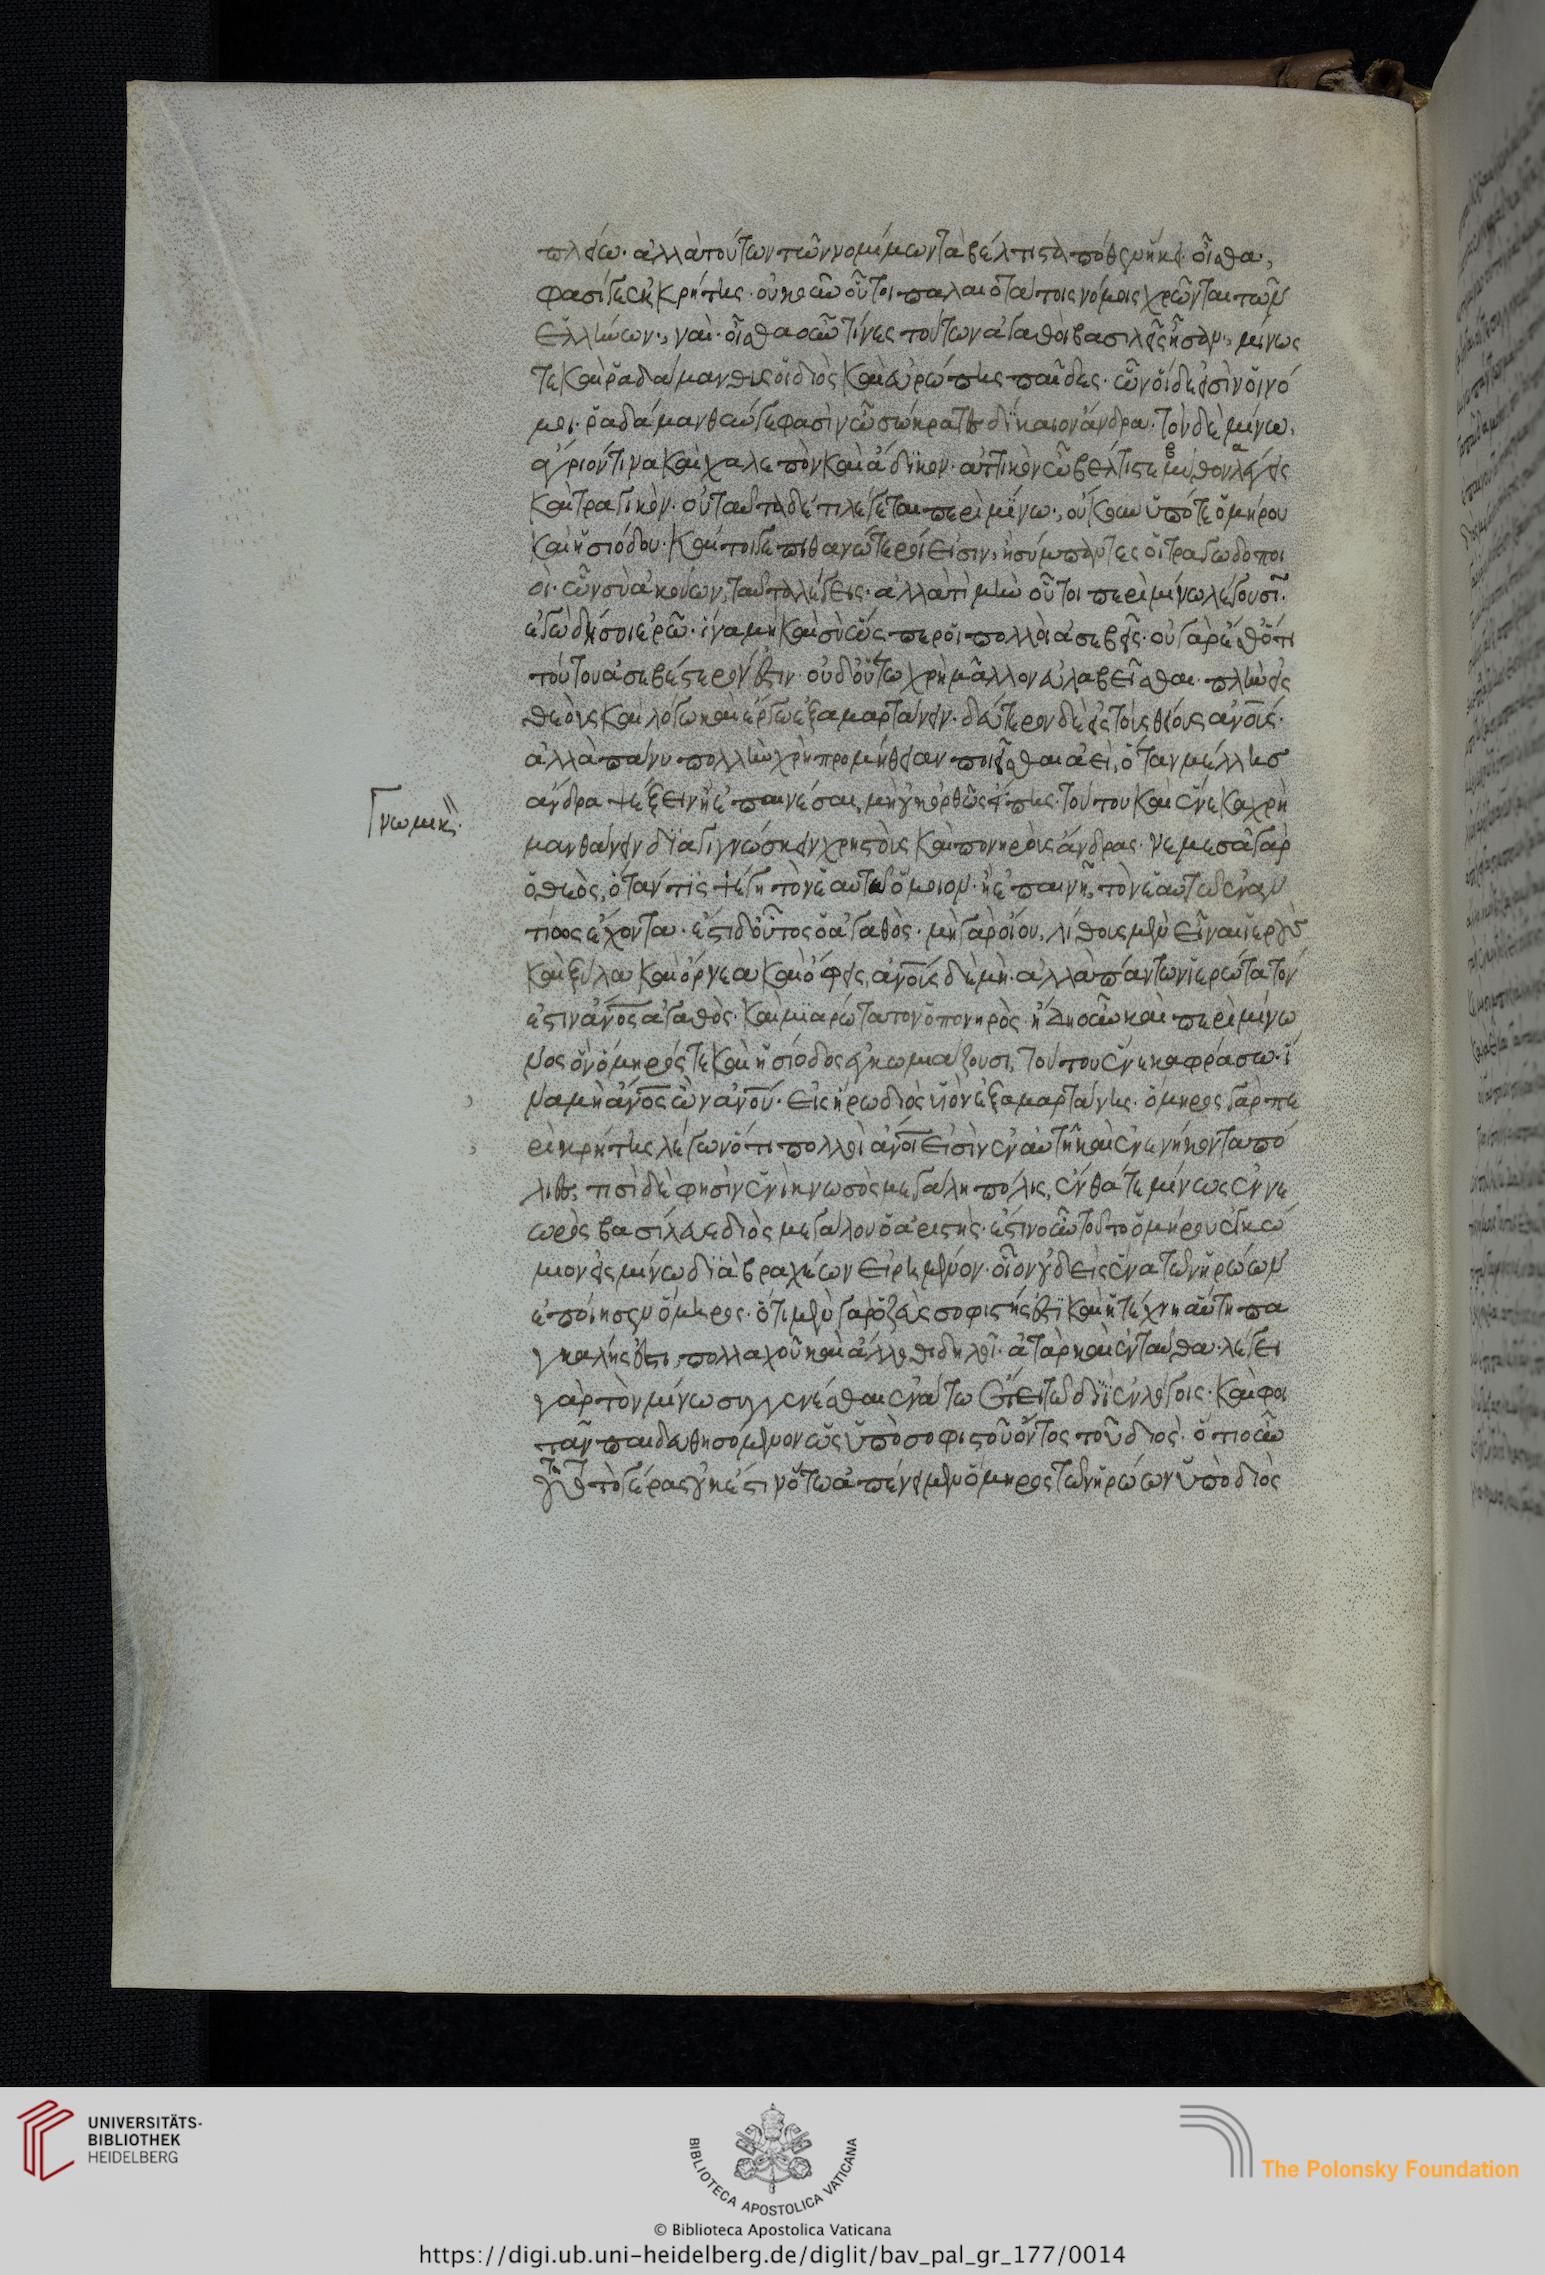 πλείω· ἀλλὰ τούτων τῶν νομίμων τὰ βέλτιστα πόθεν ἥκει· οἶσθα,
φασί γε ἐκ κρήτης· οὐκοῦν οὗτοι παλαιοτάτοις νόμοις χρῶνται τῶν
ἑλλήνων., ναί· οἶσθα οὖν τίνες τούτων ἀγαθοὶ βασιλεῖς ἦσαν., μίνως
τε καὶ ῥαδάμανθυς οἱ διὸς καὶ εὐρώπης παῖδες· ὧν οἵδε εἰσὶν οἱ νό
μοι· ῥαδάμανθύν γε φασὶν ὦ σώκρατες δίκαιον ἄνδρα· τὸν δὲ μίνω,
ἄγριόν τινα καὶ χαλεπὸν καὶ ἄδικον· ἀττικὸν ὦ βέλτιστε μῦθον λέγεις
καὶ τραγικὸν· οὐ ταῦτα δέ τι λέγεται περὶ μίνω., οὔκουν ὑπό γε ὁμήρου
καὶ ἡσιόδου· καί τοι γε πιθανώτεροί εἰσιν, ἢ σύμπαντες οἱ τραγωδοποι
οὶ· ὧν σὺ ἀκούων, ταῦτα λέγεις· ἀλλὰ τί μὴν οὗτοι περὶ μίνω λέγουσι·
ἐγὼ δή σοι ἐρῶ· ἵνα μὴ καὶ σὺ ὥσπερ οἱ πολλοὶ ἀσεβῆς· οὐ γὰρ ἔσθ' ὅτι
τούτου ἀσεβέστερόν ἐστιν· οὐδ' ὅ τι χρὴ μᾶλλον εὐλαβεῖσθαι· πλὴν εἰς
θεοὺς καὶ λόγω καὶ ἔργω ἐξαμαρτάνειν· δεύτερον δὲ εἰς τοὺς θείους ἀνους·
ἀλλὰ πάνυ πολλὴν χρὴ προμήθειαν ποιεῖσθαι ἀεὶ, ὅταν μέλλης
ἄνδρα ψέξειν ἢ ἐπαινέσαι, μὴ οὐκ ὀρθῶς εἴπης· τούτου καὶ ἕνεκα χρὴ
Γνωμικὸν·
μανθάνειν διαγιγνώσκειν χρηστοὺς καὶ πονηροὺς ἄνδρας· νεμεσᾶ γὰρ
ὁ θεὸς, ὅταν τις ψέγη τὸν ἑαυτῶ ὅμοιον· ἢ ἐπαινῆ, τὸν ἑαυτῶ ἐναν
τίως ἔχοντα· ἔστι δ' οὗτος ὁ ἀγαθὸς· μὴ γὰρ οἴου, λίθους μὲν εἶναι ἱεροὺς
καὶ ξύλα καὶ ὄρνεα καὶ ὄφεις, ἀνους δὲ μὴ· ἀλλὰ πάντων ἱερώτατόν
ἐστιν ἄνος ἀγαθὸς· καὶ μιαρώτατον ὁ πονηρὸς· ἤδη οὖν καὶ περὶ μίνω
ὡς αὐτὸν ὅμηρός τε καὶ ἡσίοδος ἐγκωμιάζουσι, τούτου ἕνεκα φράσω· ἵ
να μὴ ἄνος ὢν ἀνου· εἰς ἥρω διὸς υἱὸν ἐξαμαρτάνης· ὅμηρος γὰρ πε
ρὶ κρήτης λέγων ὅτι πολλοὶ ἄνοι εἰσὶν ἐν αὐτῆ καὶ ἐνενήκοντα πό
λιες, τῆσι δὲ φησὶν ἔνι κνωσὸς μεγάλη πόλις, ἔνθά τε μίνως ἐννέ
ωρος βασίλευε διὸς μεγάλου ὀαριστὴς· ἔστιν οὖν τοῦτο ὁμήρου ἐγκώ
μιον εἰς μίνω διὰ βραχέων εἰρημένον· οἷον οὐδ' εἰς ἕνα τῶν ἡρώων
ἐποίησεν ὅμηρος· ὅτι μὲν γὰρ ὁ ζεὺς σοφιστής ἐστι καὶ ἡ τέχνη αὕτη πα
γκάλη ἐστι, πολλαχοῦ καὶ ἄλλοθι δηλοῖ· ἀτὰρ καὶ ἐνταῦθα· λέγει
γὰρ τὸν μίνω συγγενέσθαι ἐνάτω ἔτει τῶ διῒ ἐν λόγοις· καὶ φοι
τᾶν παιδευθησόμενον ὡς ὑπὸ σοφιστοῦ ὄντος τοῦ διὸς· ὅτι οὖν
τοῦτο τὸ γέρας οὐκ ἔστιν ὅτω ἀπένειμεν ὅμηρος τῶν ἡρώων ὑπὸ διὸς
UNIVERSITÄTS-
BIBLIOTHEK
HEIDELBERG
BIBLIOTECA APOSTOLICA VATICANA
The Polonsky Foundation
© Biblioteca Apostolica Vaticana
https://digi.ub.uni-heidelberg.de/diglit/bav_pal_gr_177/0014